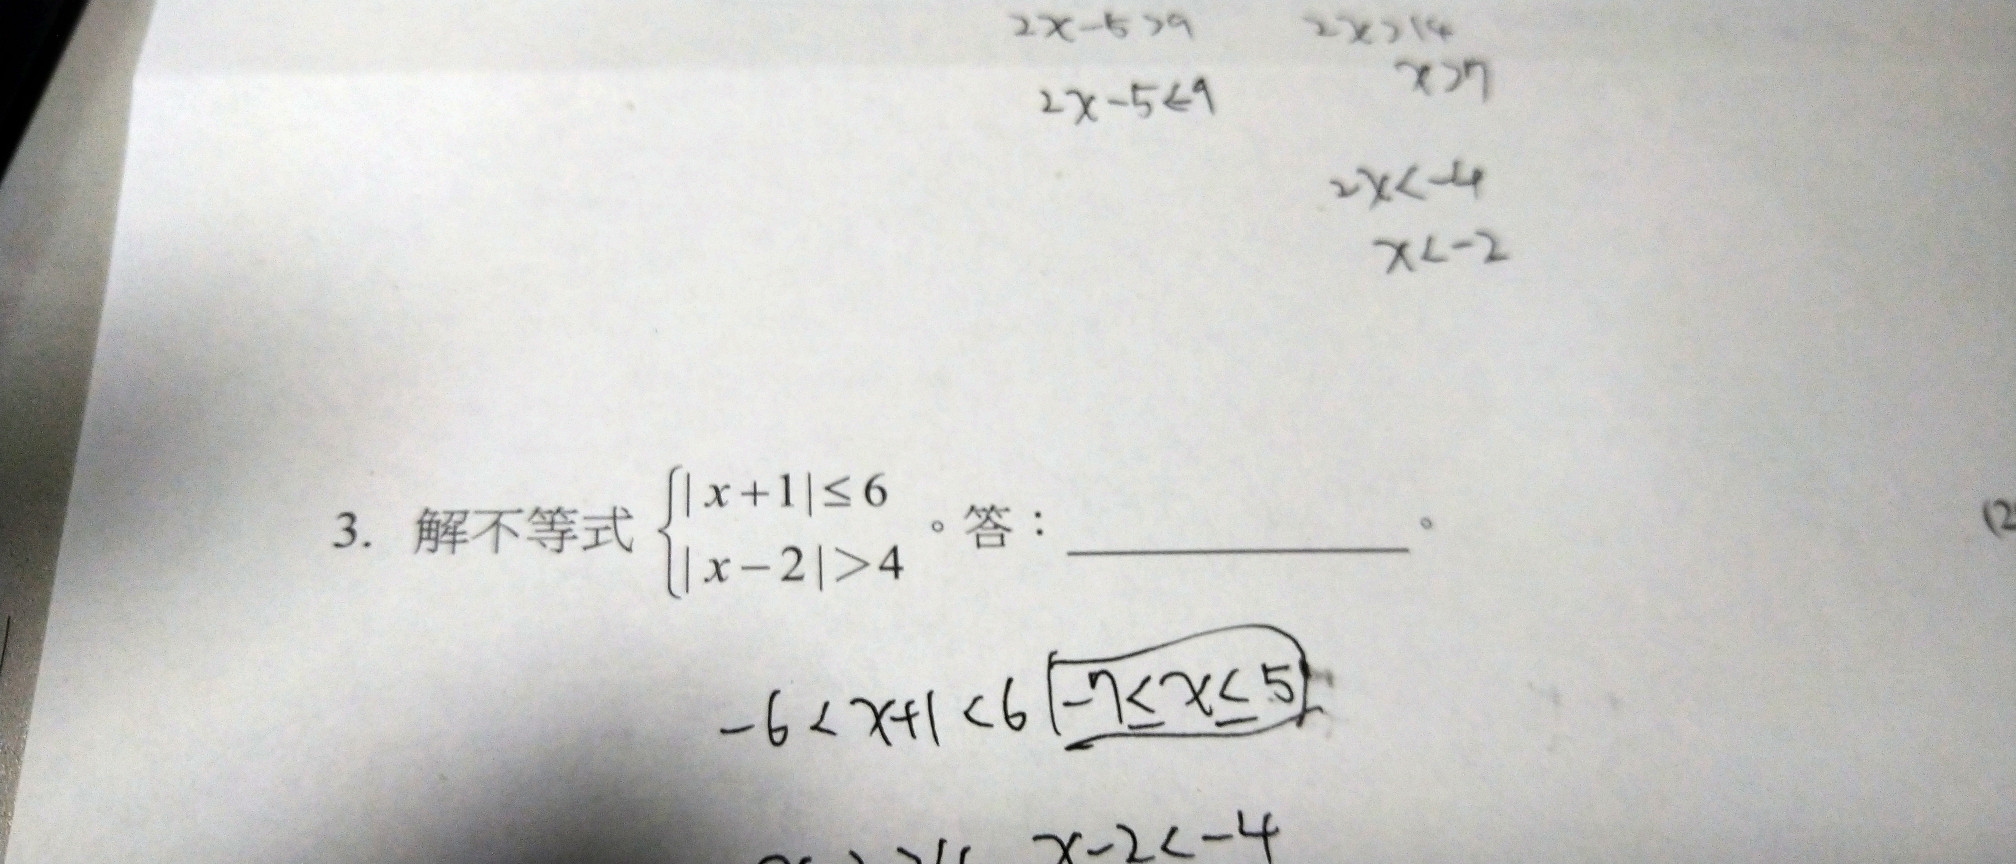 2x-5>9 2x>14
x>7
2x-5<9
2x<-4
x<-2
3. 解不等式 {|x+1|≤6 |x-2|>4 。答：＿＿＿＿＿＿。
-6<x+1<6 -7≤x≤5
x-2<-4